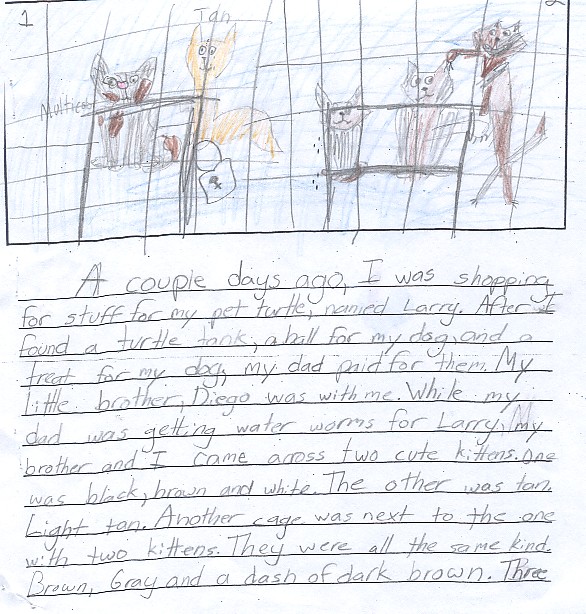 1
Tan
2
Multico
A couple days ago, I was shopping
for stuff for my pet turtle, named Larry. After I
found a turtle tank, a ball for my dog, and a
treat for my dog, my dad paid for them. My
little brother, Diego was with me. While my
dad was getting water worms for Larry, My
brother and I came across two cute kittens. One
was black, brown and white. The other was tan.
Light tan. Another cage was next to the one
with two kittens. They were all the same kind.
Brown, Gray and a dash of dark brown. Three